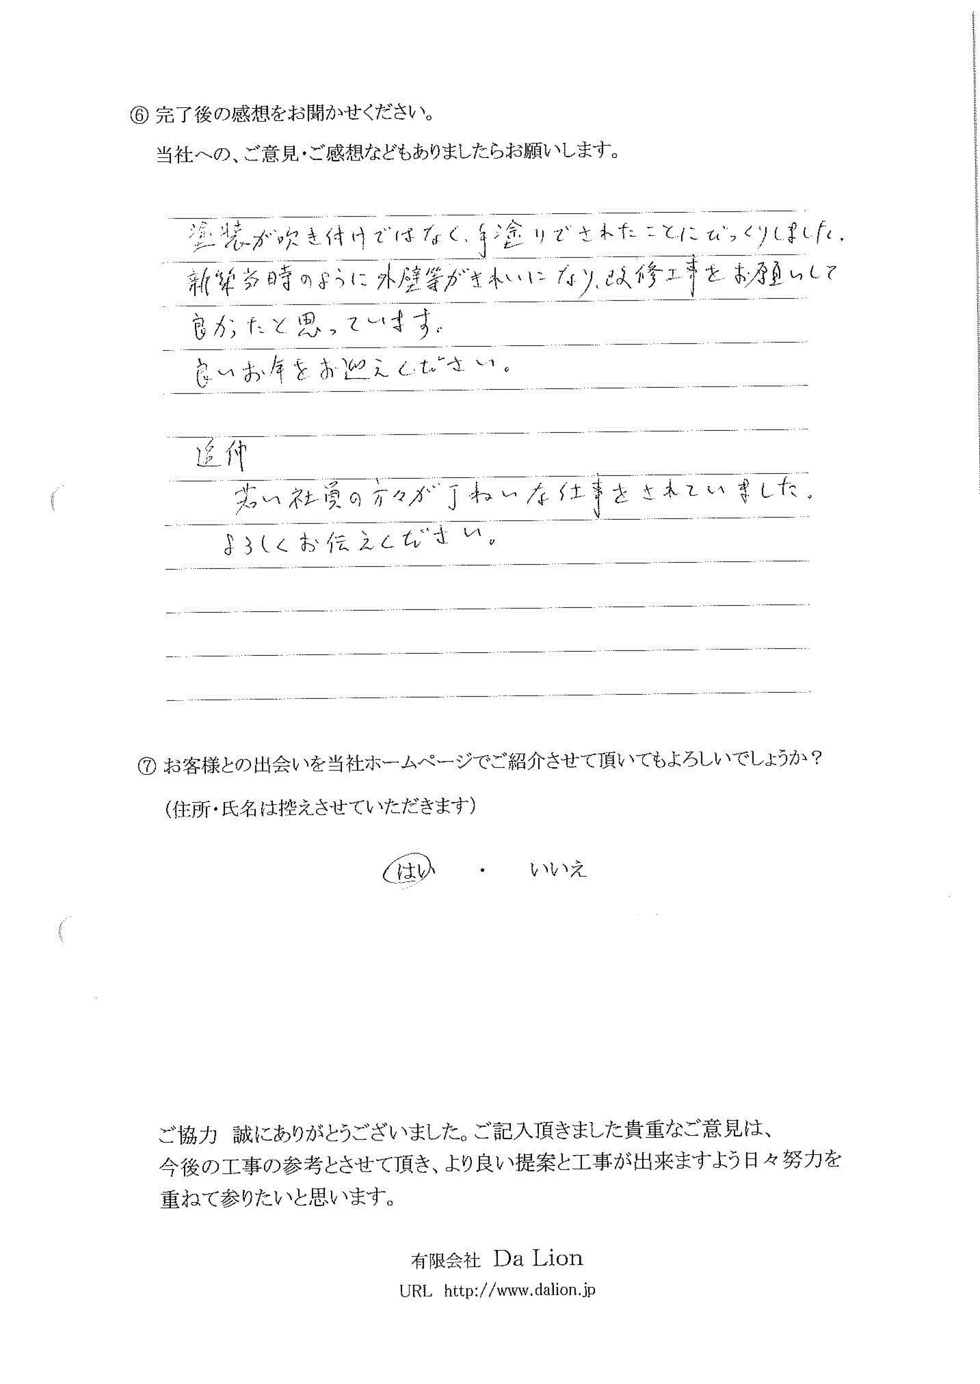 ⑥ 完了後の感想をお聞かせください。
当社への、ご意見・ご感想などもありましたらお願いします。
塗装が吹き付けではなく、手塗りでされたことにびっくりしました。
新築当時のように外壁等がきれいになり、改修工事をお願いして
良かったと思っています。
良いお年をお迎えください。
追伸
若い社員の方々が丁ねいな仕事をされていました。
よろしくお伝えください。
⑦ お客様との出会いを当社ホームページでご紹介させて頂いてもよろしいでしょうか？
（住所・氏名は控えさせていただきます）
はい ・ いいえ
ご協力 誠にありがとうございました。ご記入頂きました貴重なご意見は、
今後の工事の参考とさせて頂き、より良い提案と工事が出来ますよう日々努力を
重ねて参りたいと思います。
有限会社 Da Lion
URL http://www.dalion.jp